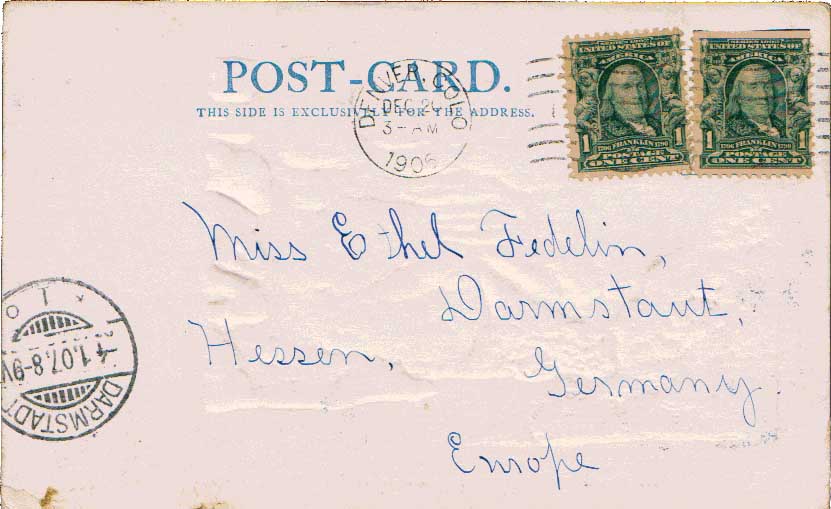 POST-CARD.
THIS SIDE IS EXCLUSIVELY FOR THE ADDRESS.
DENVER, COLO
DEC 20
3-AM
1906
SERIES 1902
UNITED STATES OF
AMERICA
1 1
1706 FRANKLIN 1790
POSTAGE
ONE CENT
SERIES 1902
UNITED STATES OF
AMERICA
1 1
1706 FRANKLIN 1790
POSTAGE
ONE CENT
Miss Ethel Fedelin,
Darmstaut,
Hessen,
Germany.
Europe
1.07.8-9V
DARMSTADT